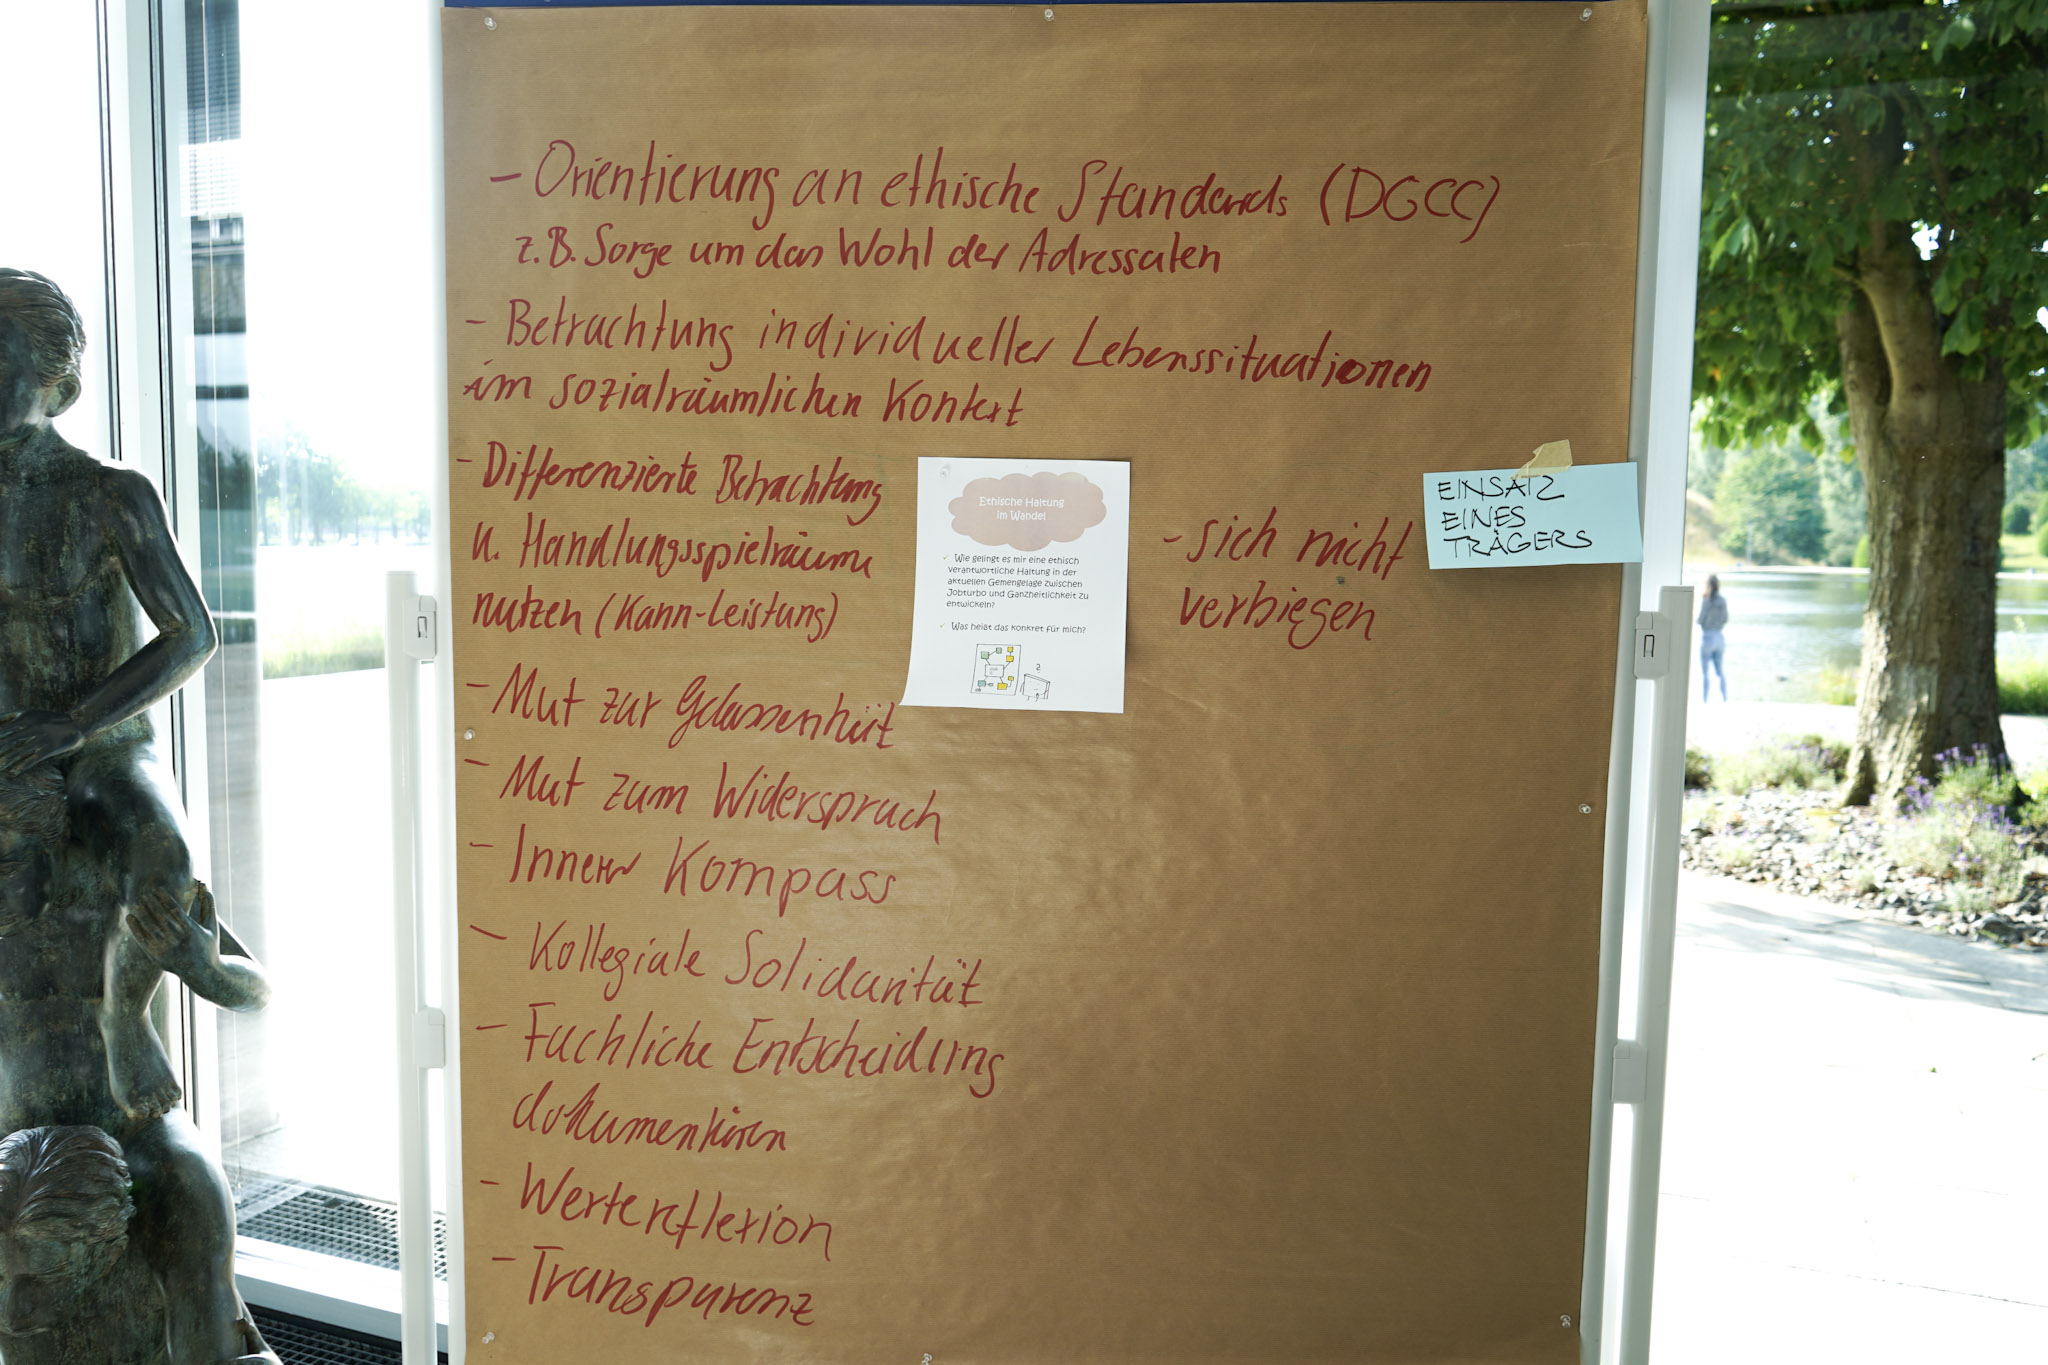 - Orientierung an ethische Standards (DGCC)
z.B. Sorge um das Wohl der Adressaten
- Betrachtung individueller Lebenssituationen
im sozialräumlichen Kontext
- Differenzierte Betrachtung
u. Handlungsspielräume
nutzen (Kann-Leistung)
- Mut zur Gelassenheit
- Mut zum Widerspruch
- Innerer Kompass
- Kollegiale Solidarität
- Fachliche Entscheidung
dokumentieren
- Wertereflexion
- Transparenz
Ethische Haltung
im Wandel
✓ Wie gelingt es mir eine ethisch
verantwortliche Haltung in der
aktuellen Gemengelage zwischen
Jobturbo und Ganzheitlichkeit zu
entwickeln?
✓ Was heißt das konkret für mich?
- sich nicht
verbiegen
EINSATZ
EINES
TRÄGERS